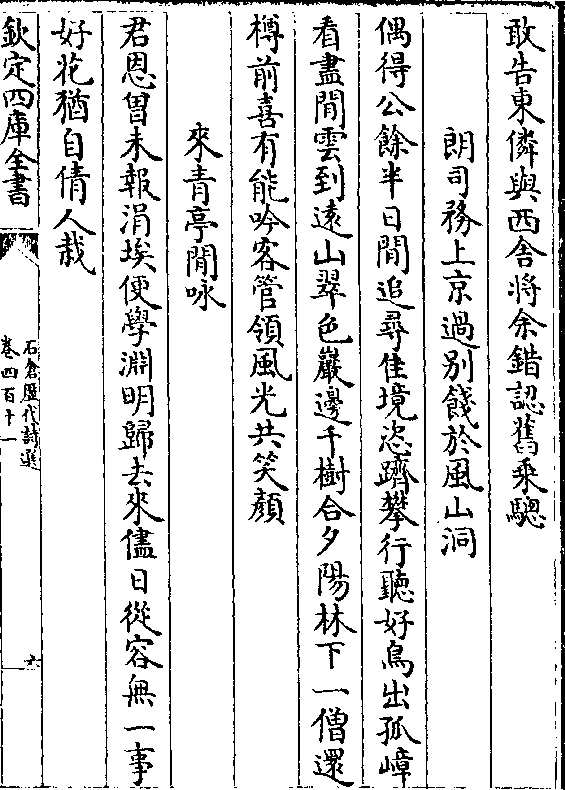 敢告東鄰與西舎將余錯認舊乘驄
朗司務上京過别餞於風山洞
偶得公餘半日間追尋佳境恣躋攀行聽好鳥出孤嶂
看盡閒雲到遠山翠色巖邊千樹合夕陽林下一僧還
樽前喜有能吟客管領風光共笑顔
來青亭閒咏
君恩曽未報涓埃便學淵明歸去來儘日從容無一事
好花猶自倩人栽
欽定四庫全書
石倉歴代詩選
卷四百十一
六